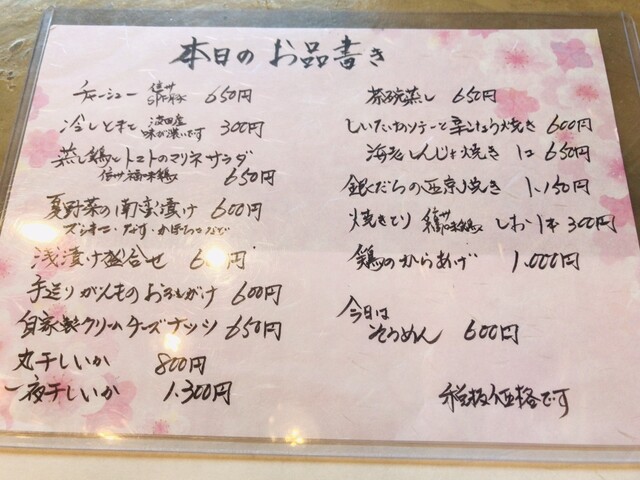 本日のお品書き
チャーシュー 信州SPF豚 650円
冷しとまと 波田産 味が濃いです 300円
蒸し鶏とトマトのマリネサラダ
信州福味鶏 650円
夏野菜の南蛮漬け 600円
ズッキーニ・なす・かぼちゃなど
浅漬け盛合せ 円
手造りがんものおろしがけ 600円
自家製クリームチーズナッツ 650円
丸干しいか 800円
一夜干しいか 1.300円
茶碗蒸し 650円
しいたけのソテーと 焼き 600円
海老しんじょ焼き 1コ 650円
銀だらの西京焼き 1.150円
焼きとり 信州福味鶏 しお 1本 300円
鶏のからあげ 1.000円
今日は
そうめん 600円
税抜価格です